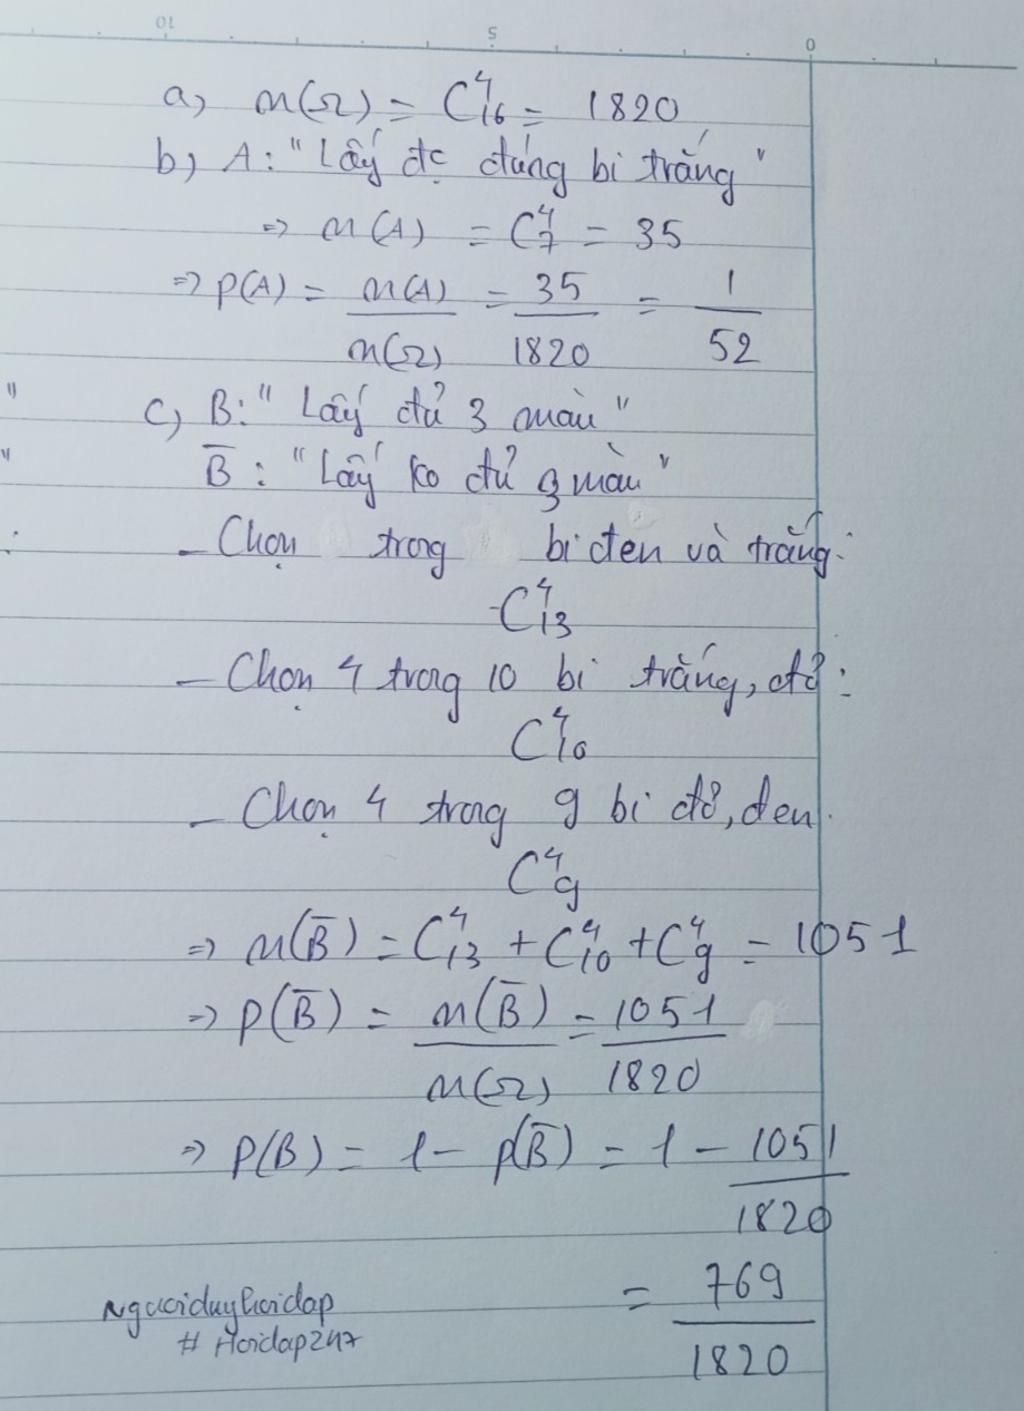 10 5 0
a) n(Ω) = C⁴₁₆ = 1820
b) A: "Lấy đc đúng bi trắng"
=> n(A) = C⁴₇ = 35
=> P(A) = n(A)/n(Ω) = 35/1820 = 1/52
c) B: "Lấy đủ 3 màu"
B̅: "Lấy ko đủ 3 màu"
- Chọn trong bi đen và trắng:
C⁴₁₃
- Chọn 4 trong 10 bi trắng, đỏ:
C⁴₁₀
- Chọn 4 trong 9 bi đỏ, đen.
C⁴₉
=> n(B̅) = C⁴₁₃ + C⁴₁₀ + C⁴₉ = 1051
=> P(B̅) = n(B̅)/n(Ω) = 1051/1820
=> P(B) = 1 - P(B̅) = 1 - 1051/1820
= 769/1820
# Hoidap247